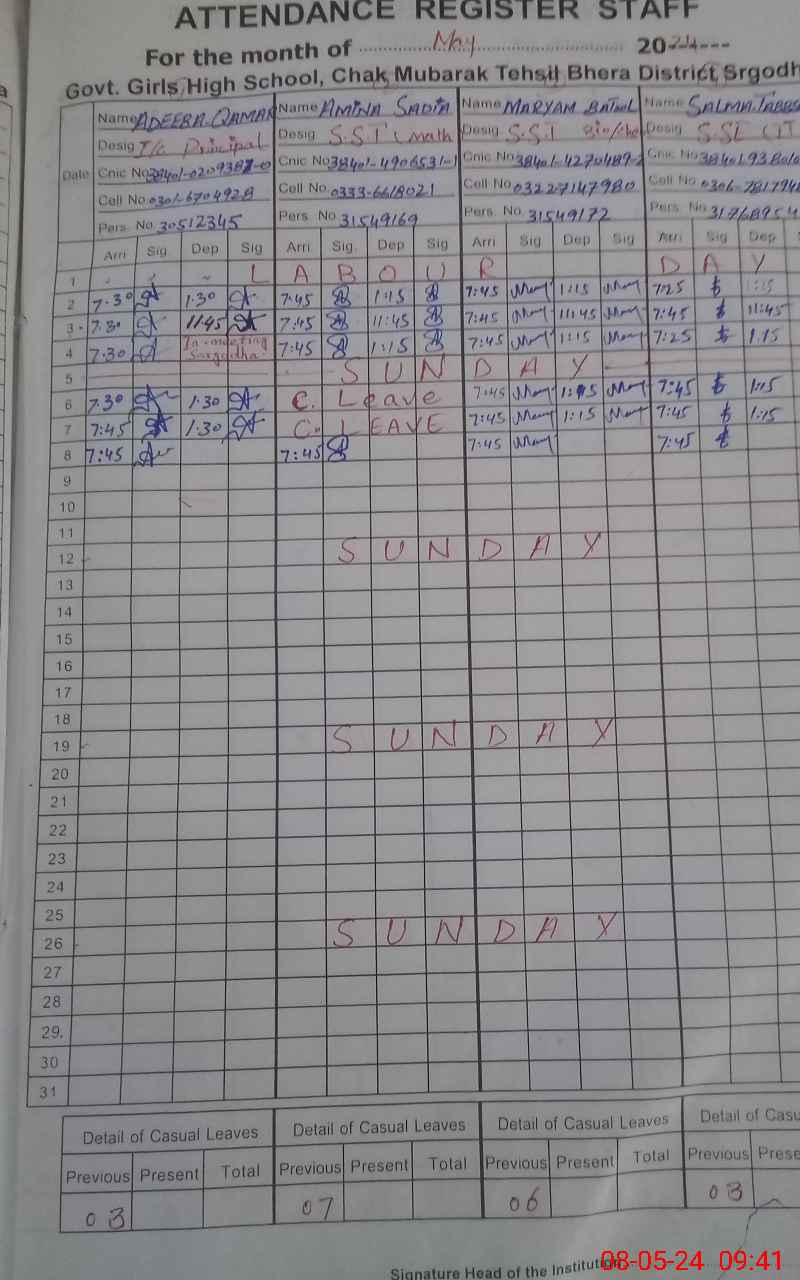 ATTENDANCE REGISTER STAFF
For the month of May 2024
Govt. Girls High School, Chak Mubarak Tehsil Bhera District Srgodh
Name ADEEBA QAMAR Name AMINA SADIA Name MARYAM BATOOL Name SALMA
Desig I/c Principal Desig S.S.T (math) Desig S.S.T Bio/che Desig SST (IT
Date Cnic No 38401-0209387-0 Cnic No 38401-4906531-1 Cnic No 38401-4270489-2 Cnic No
Cell No 0301-6704928 Cell No 0333-6618021 Cell No 03227147980 Cell No 0306-7817941
Pers. No. 30512345 Pers No 31549169 Pers No. 31549172 Pers No. 31768954
Arri Sig. Dep Sig Arri Sig. Dep Sig Arri Sig Dep Sig Arri Sig Dep
1 L A B O U R D A Y
2 7.30 1:30 7:45 1:15 7:45 1:15 7:25 1:15
3 7.30 11:45 7:45 11:45 7:45 11:45 7:45 11:45
4 7.30 In meeting Sargodha 7:45 1:15 7:45 1:15 7:25 1.15
5 S U N D A Y
6 7.30 1:30 C. Leave 7:45 1:15 7:45 1:15
7 7:45 1:30 C. LEAVE 7:45 1:15 7:45 1:15
8 7:45 7:45 7:45 7:45
9
10
11
12 S U N D A Y
13
14
15
16
17
18
19 S U N D A Y
20
21
22
23
24
25
26 S U N D A Y
27
28
29.
30
31
Detail of Casual Leaves Detail of Casual Leaves Detail of Casual Leaves Detail of Casu
Previous Present Total Previous Present Total Previous Present Total Previous Prese
03 07 06 03
Signature Head of the Institution
08-05-24 09:41